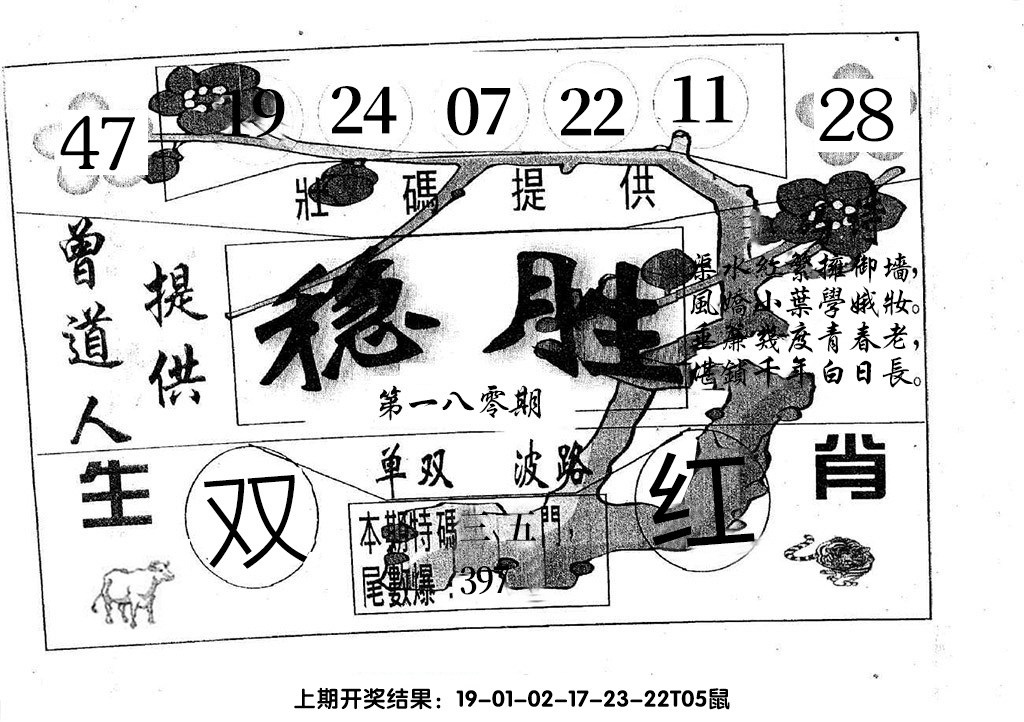 47 19 24 07 22 11 28
壯碼提供
曾道人
提供
稳胜
第一八零期
渠水红繁擁御墙，
風嬌小葉學娥妝。
垂簾幾度青春老，
堪鎖千年白日長。
单双 波路
生肖
双
红
本期特碼三、五門，
尾數爆：397
上期开奖结果：19-01-02-17-23-22T05鼠